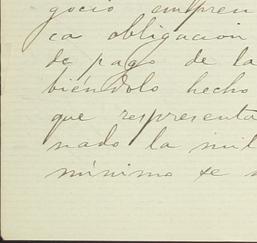 gocio empren
ca obligacion
de pago de la
biéndolo hecho
que respresenta
nado la mit
mínimo se